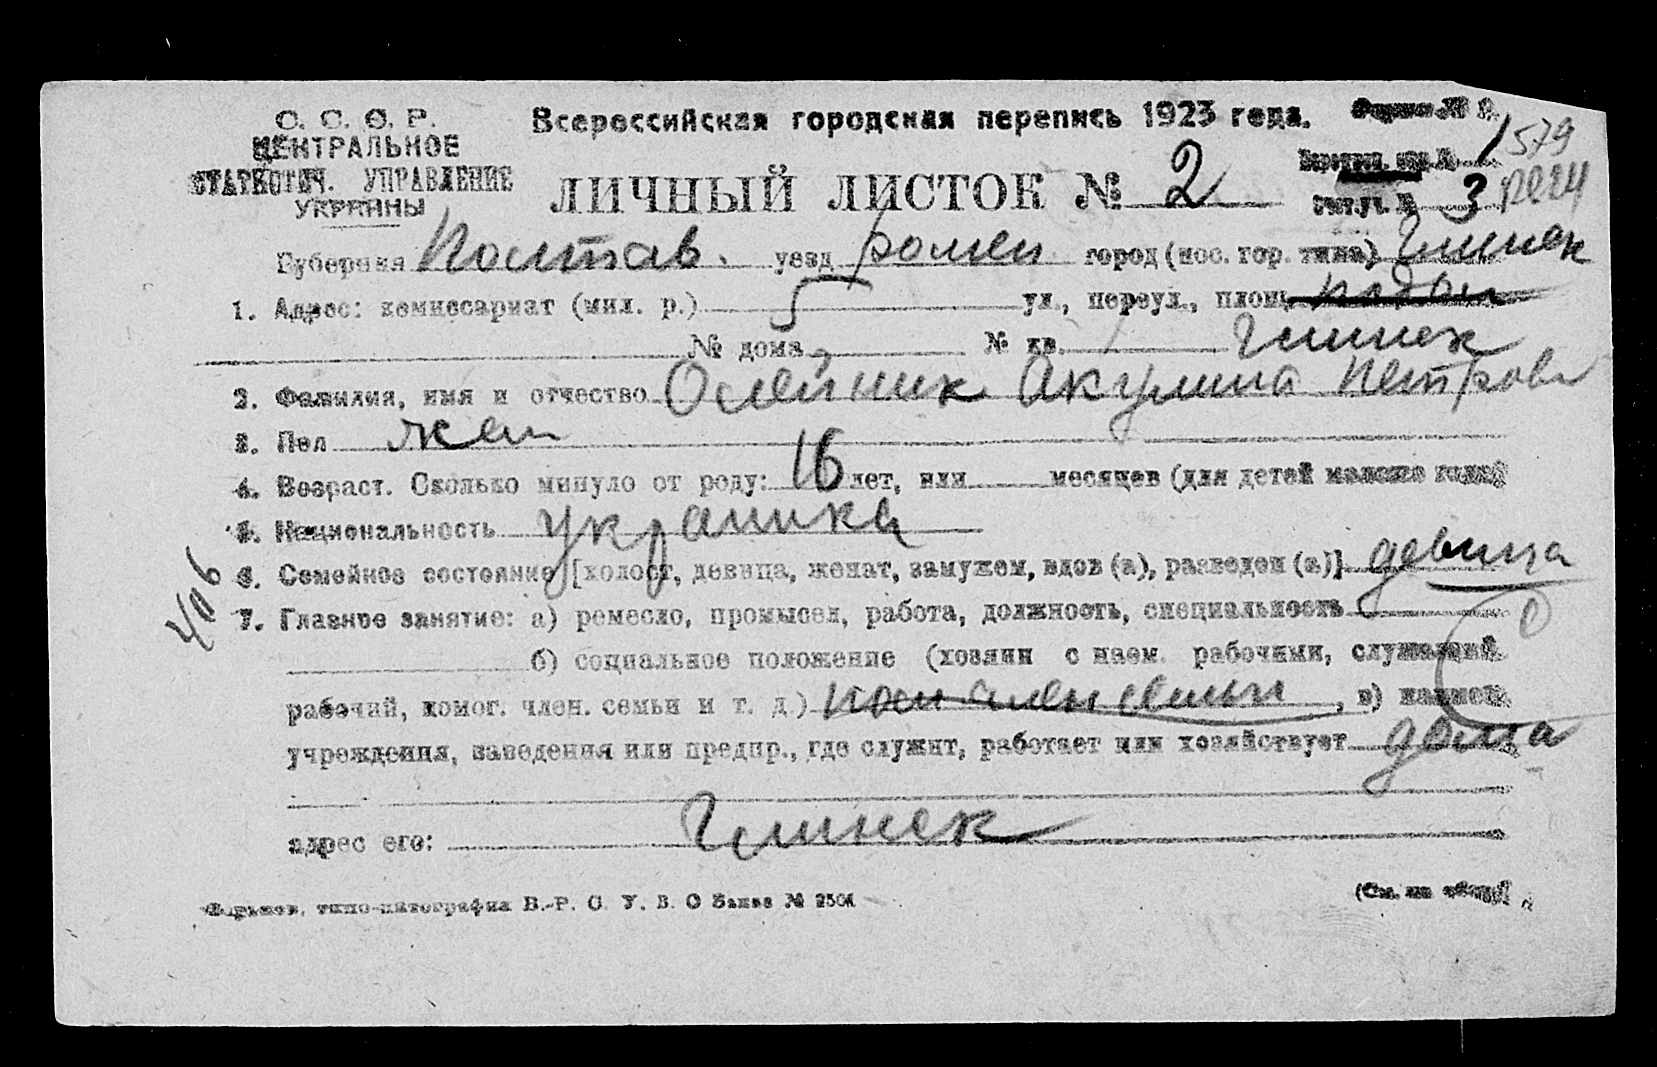 С. С. С. Р.
ЦЕНТРАЛЬНОЕ
СТАТИСТИЧ. УПРАВЛЕНИЕ
УКРАИНЫ
Всероссийская городская перепись 1923 года.
ЛИЧНЫЙ ЛИСТОК № 2
1579
3
Губерния Полтав. уезд Ромен город (пос. гор. типа) Глинск
1. Адрес: комиссариат (мил. р.) 5 ул., переул., площ.
№ дома № кв. Глинск
2. Фамилия, имя и отчество Олейник Акулина Петров
3. Пол жен
4. Возраст. Сколько минуло от роду: 16 лет, или месяцев (для детей моложе года)
5. Национальность украинка
6. Семейное состояние [холост, девица, женат, замужем, вдов (а), разведен (а)] девица
7. Главное занятие: а) ремесло, промысел, работа, должность, специальность
0
б) социальное положение (хозяин с наем. рабочими, служащий,
рабочий, помог. член. семьи и т. д.) пом член семьи, в) наимен.
учреждения, заведения или предпр., где служит, работает или хозяйствует дома
адрес его: Глинск
Харьков, типо-литография В.-Р. С. У. В. О Заказ № 2501
(См. на обор